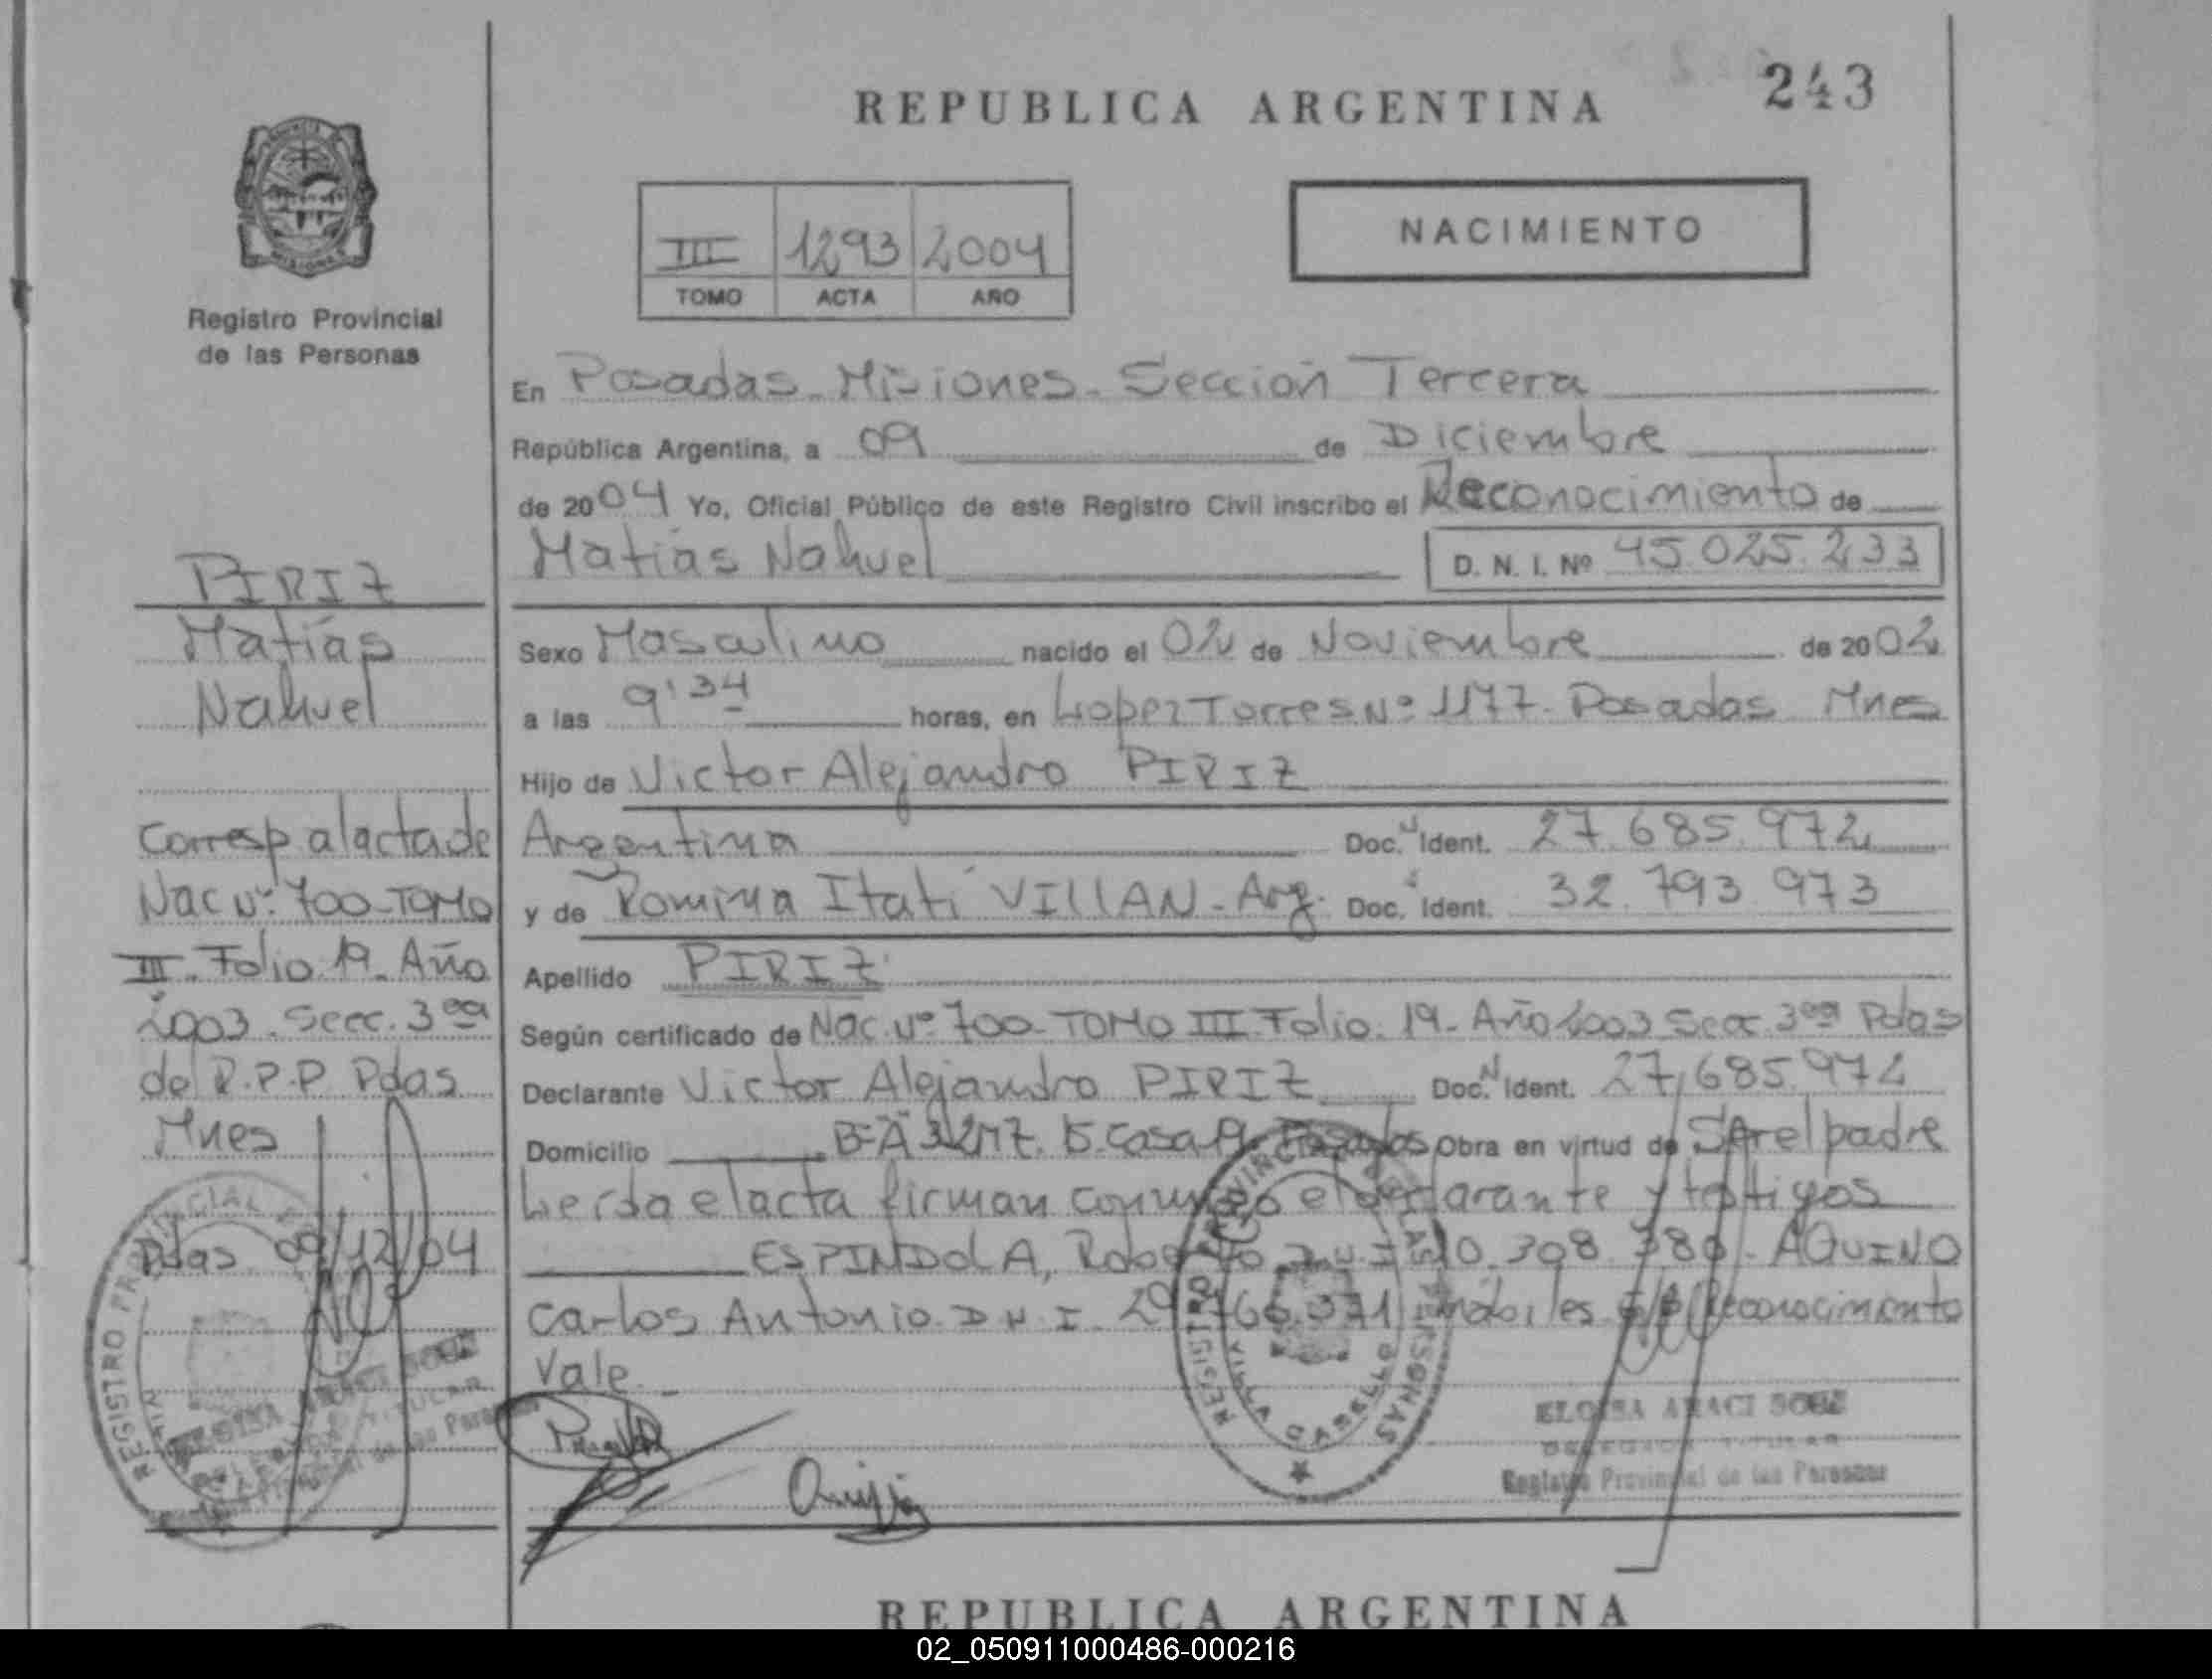 243
REPUBLICA ARGENTINA
NACIMIENTO
III 1293 2004
TOMO ACTA AÑO
Registro Provincial
de las Personas
En Posadas - Misiones - Sección Tercera
República Argentina, a 09 de Diciembre
de 2004 Yo, Oficial Público de este Registro Civil inscribo el Reconocimiento de
Matías Nahuel D. N. I. Nº 45.025.233
Sexo Masculino nacido el 02 de Noviembre de 2002
a las 9'34 horas, en Lopez Torres Nº 1177. Posadas Mnes
Hijo de Victor Alejandro PIRIZ
Argentina Doc. N Ident. 27.685.972
y de Romina Itatí VILLAN - Arg. Doc. Ident. 32.793.973
Apellido PIRIZ
Según certificado de Nac. Nº 700 - TOMO III Folio. 19 - Año 2003 Secc. 3era Pdas
Declarante Victor Alejandro PIRIZ Doc. N Ident. 27.685.972
Domicilio Casa Posadas Obra en virtud de Ser el padre
Leída el acta firman conmigo el declarante y testigos
ESPINDOLA, Roberto D.N.I. 10.308.380 - AQUINO
Carlos Antonio D.N.I. Reconocimiento
Vale -
PIRIZ
Matías
Nahuel
Corresp al acta de
Nac Nº 700 - TOMO
III - Folio 19 - Año
2003 - Secc. 3era
del R.P.P Pdas
Mnes
Pdas 09/12/04
REGISTRO PROVINCIAL DE LAS PERSONAS
VILLA CABELLO
ELOISA ARACI
DELEGADA TITULAR
Registro Provincial de las Personas
REGISTRO PROVINCIAL
DELEGADA TITULAR
REPUBLICA ARGENTINA
02_050911000486-000216